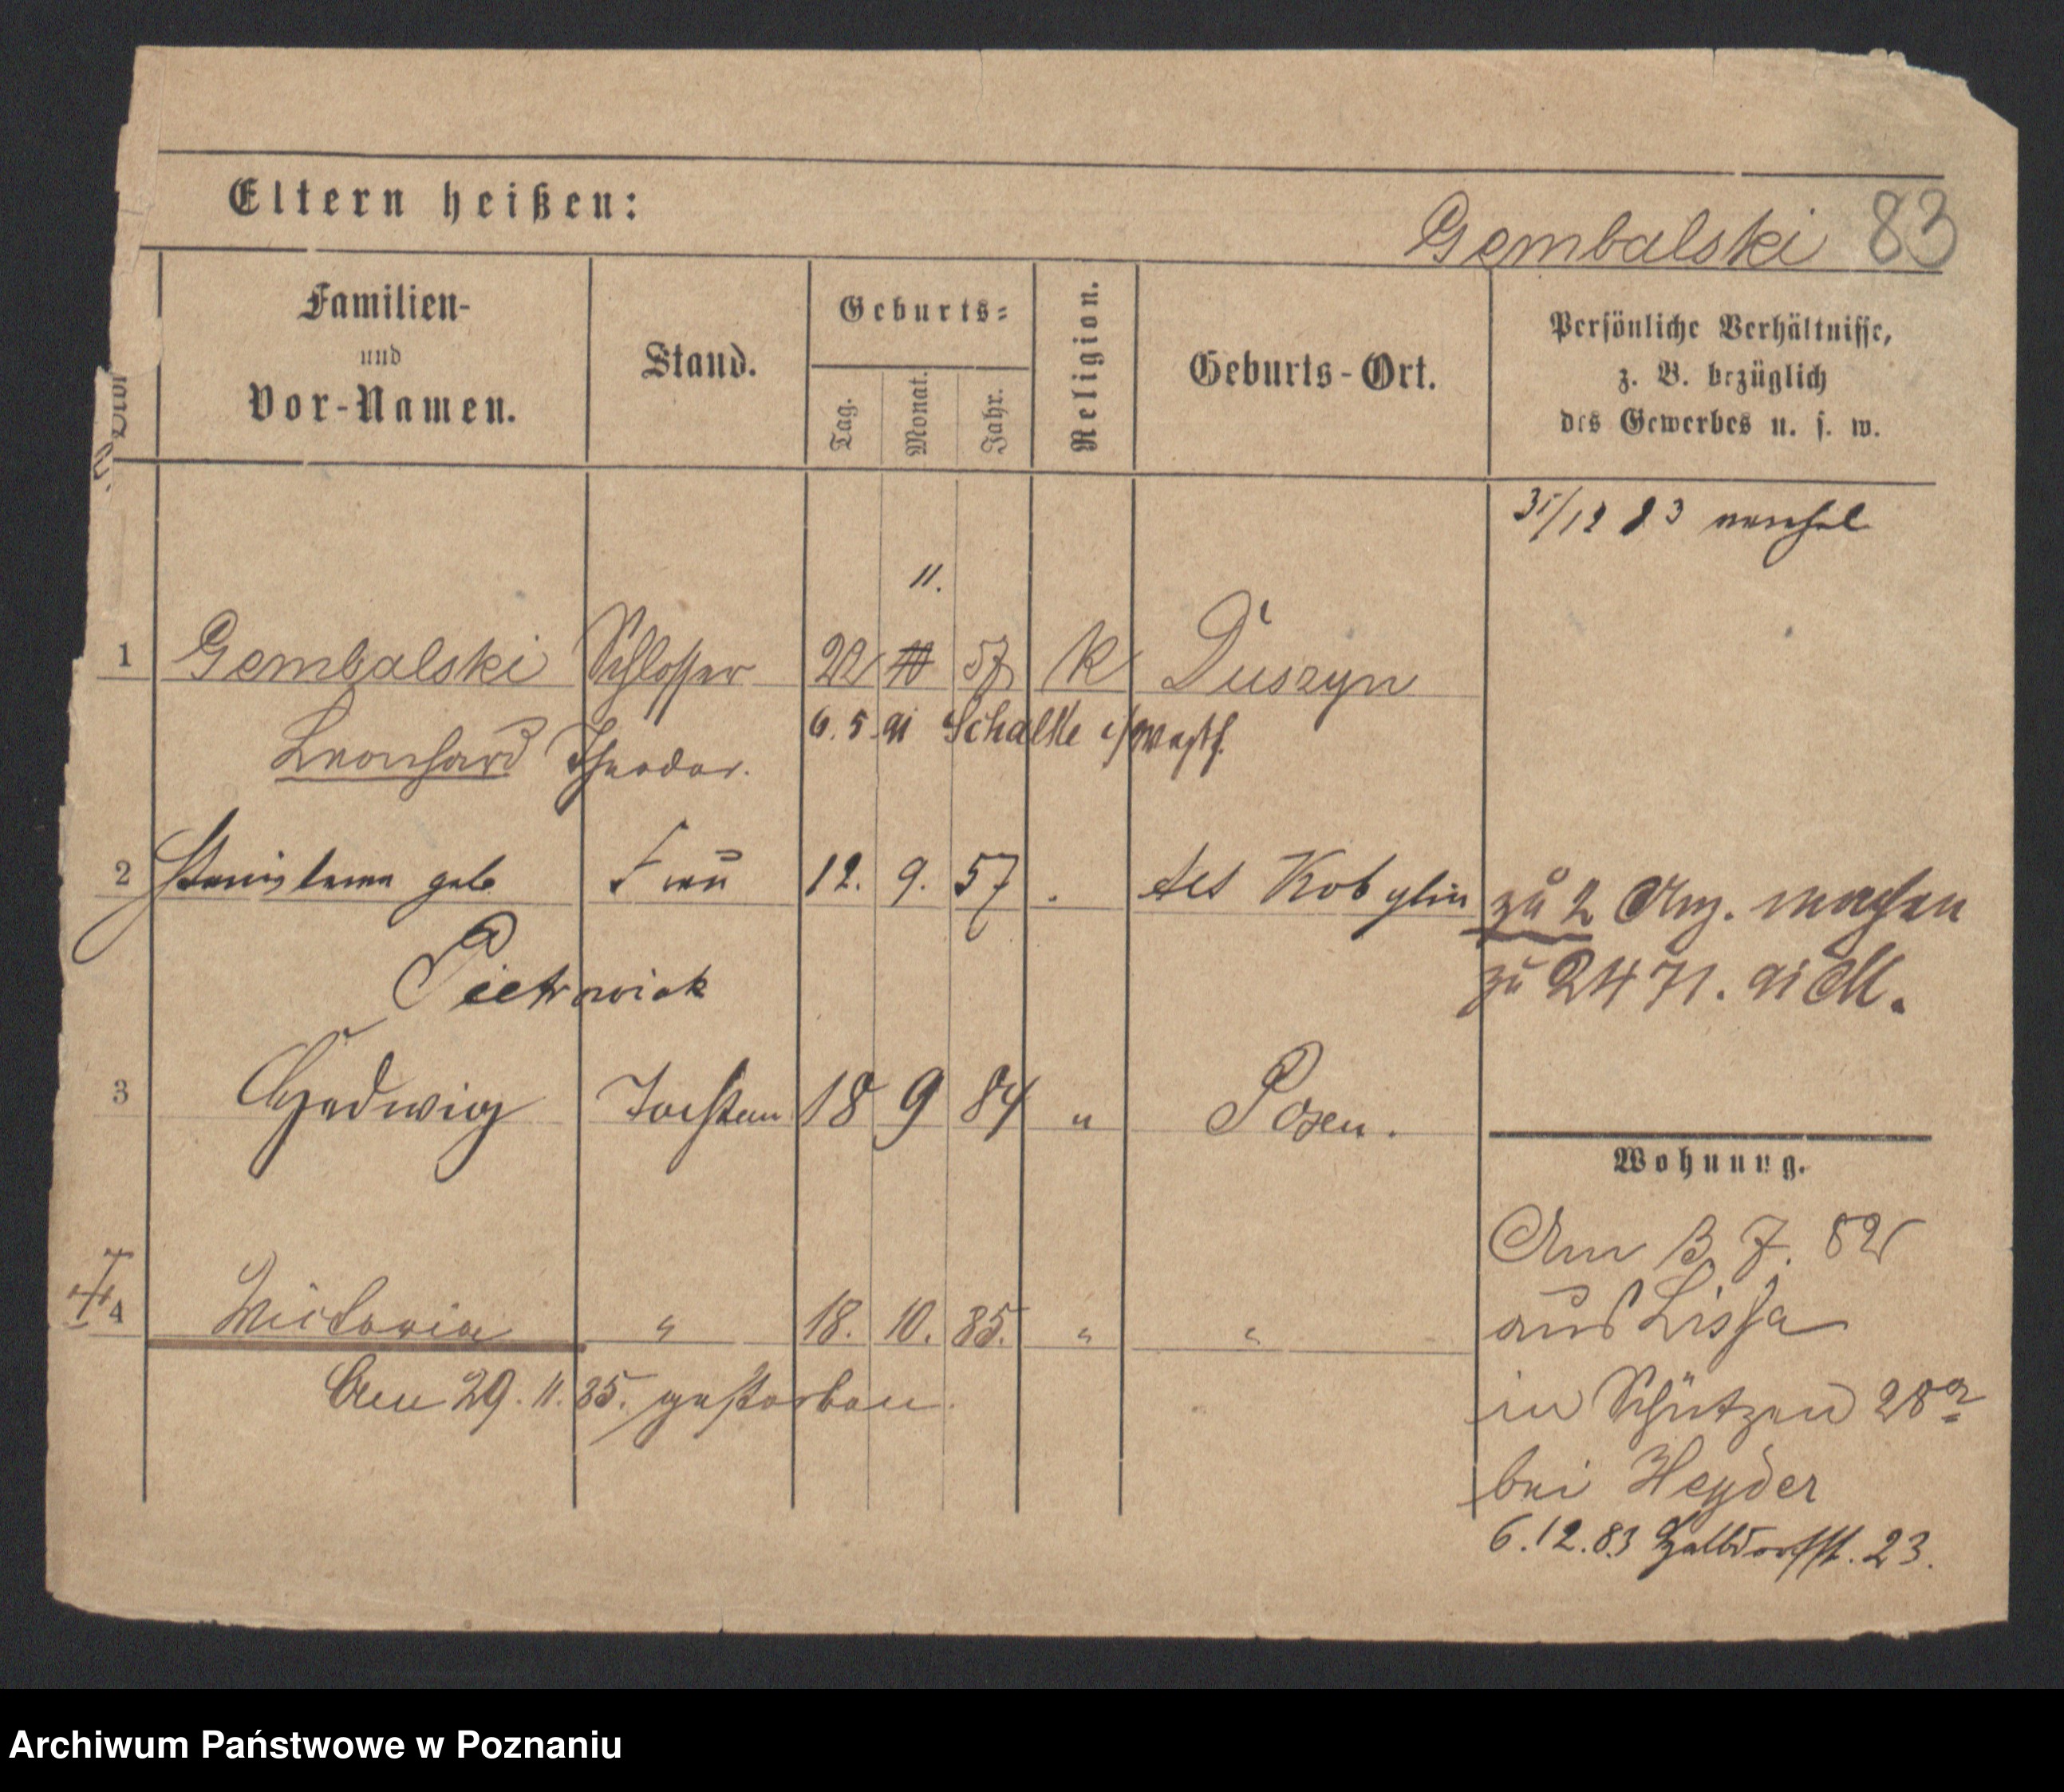 Eltern heißen:
Gembalski 83
Familien-
und
Vor-Namen.
Stand.
Geburts-
Tag.
Monat.
Jahr.
Religion.
Geburts-Ort.
Persönliche Verhältnisse,
z. B. bezüglich
des Gewerbes u. s. w.
31/12 83
11.
1 Gembalski Schlosser 22 10 57 K Duszyn
Leonhard Theodor.
6. 5. 91 Schalke i/Westf.
2 Stanislawa geb Frau 12. 9. 57 . Kobylin
Pietrowiak
zu 2 Anz. machen
zu 2471. 91 M.
3 Hedwig Tochter 18 9 84 " Posen.
Wohnung.
4 Victoria " 18. 10. 85. " "
Am 29. 11. 85. gestorben.
Am 3. 7. 82
aus Lissa
in Schützen 28a
bei Heyder
6. 12. 83 Halbdorfst. 23.
Archiwum Państwowe w Poznaniu